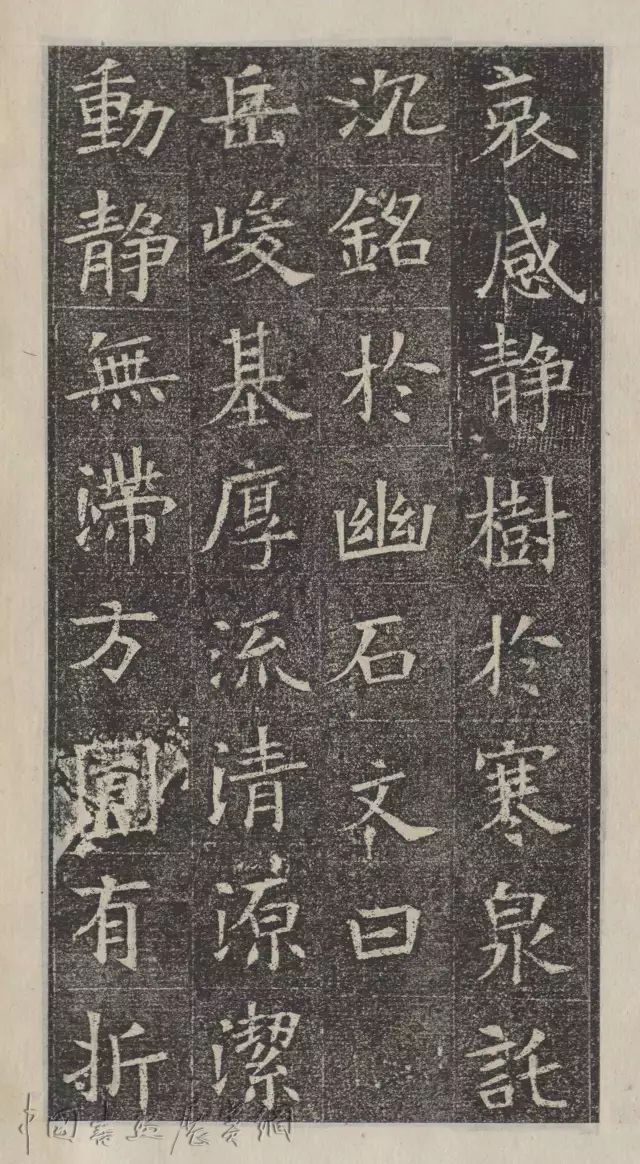 哀感静樹於寒泉託
沉銘於幽石文曰
岳峻基厚流清源潔
動靜無滯方圓有折
中国書法展賞網